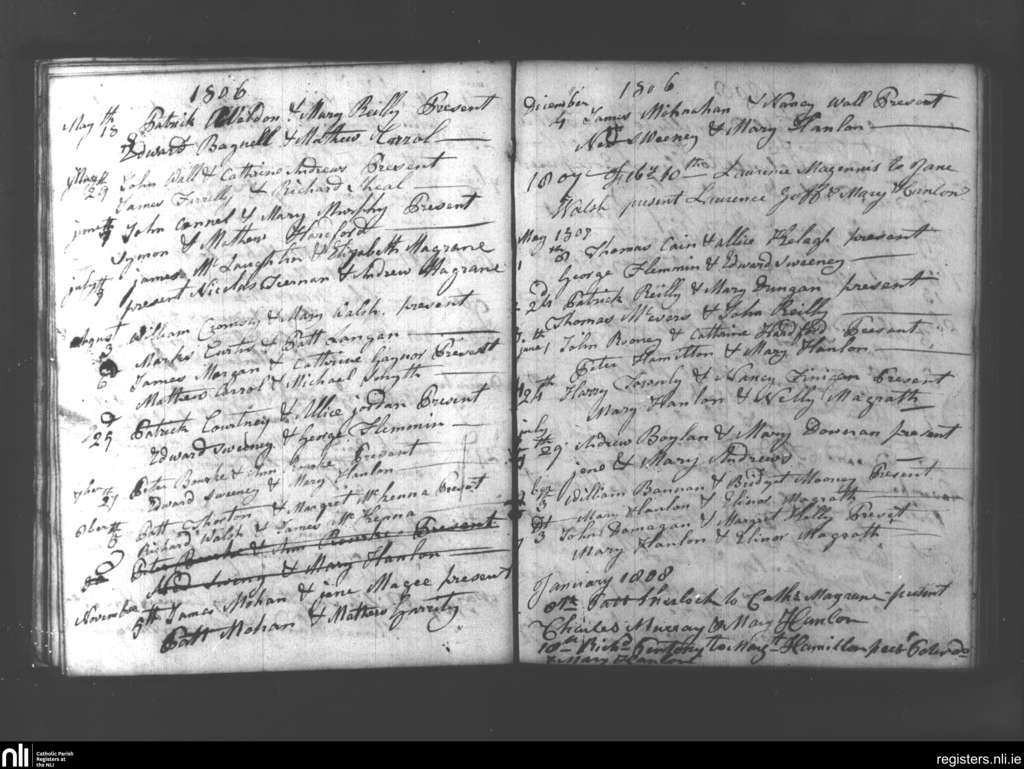 1806
May 18th Patrick Weldon & Mary Reilly Present
Edward Bagnell & Mathew Karol
May 29 John Wall & Catherine Andrews Present
James & Richard Sheal
June John Connel & Mary Murphy Present
Symon & Mathew Harford
July James McLaughlin & Elizabeth Magrane
present Nicolas Tiernan & Andrew Magrane
August William & Mary Walsh present
Marks Curtis & Patt Langan
6 James Morgan & Catherine Gaynor Present
Mathew Carrol & Michael Smyth
29 Patrick Courtney & Allice Jordan Present
Edward Sweeney & George Flemmin
7ber 27 Peter Bourke & Ann Rourke Present
Edward Sweeney & Mary Hanlon
8ber 5 Patt & Margret McKenna Present
Richard Walsh & James McKenna
Peter Bourke & Ann Rourke Present
Ned & Mary Hanlon
November 5th James Mohan & jane Magee present
Patt Mohan & Mathew Garrity
1806
Diecember 4 James Monahan & Nancy Wall Present
Ned Sweeney & Mary Hanlon
1807 10th Laurence Magennis to Jane
Walsh present Laurence Goff & Mary Hanlon
May 1807
8 Thomas Cain & allice Kelagh present
George Flemmin & Edward Sweeney
24 Patrick Reilly & Mary Dungan present
Thomas McEvers & John Reilly
june 1 John Rooney & Catherine Hardford Present
Peter Hamilton & Mary Hanlon
24th Harry & Nancy Finigan Present
Mary Hanlon & Willy Magrath
july
29 Andrew Boylan & Mary Dowman present
& Mary Andrews
3 William Bannan & Bridgt Mooney Present
Mary Hanlon & Elinor Magrath
3 John & Margret Halley
Mary Hanlon & Elinor Magrath
January 1808
8th Patt to Cathe Magrane present
Charles Murray & Mary Hanlon
18th Richd to Margt Hamilton
& Mary Hanlon
nli
Catholic Parish
Registers at
the NLI
registers.nli.ie